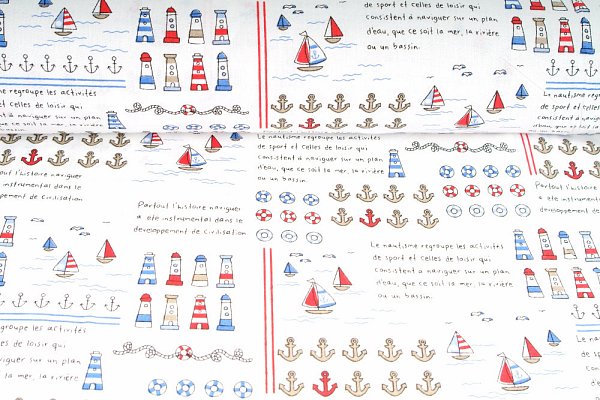 de sport et celles de loisir qui
consistent à naviguer sur un plan
d'eau, que ce soit la mer, la rivière
ou un bassin.
me regroupe les activités
et celles de loisir qui
à naviguer sur un plan
ce soit la mer, la rivière
Le nautisme re
de sport et ce
consistent à na
Le nautisme regroupe les activités
de sport et celles de loisir qui
consistent à naviguer sur un plan
d'eau, que ce soit la mer, la rivière
ou un bassin.
out l'histoire naviguer
instrumental dans le
pement de Civilisation
Partout l'histoire naviguer
a ete instrumental dans le
developpement de Civilisation
Partout l'histoire
a ete instrumental
developpement de
Le nautisme regroupe les activités
de sport et celles de loisir qui
consistent à naviguer sur un plan
d'eau, que ce soit la mer, la rivière
ou un bassin.
groupe les activités
celles de loisir qui
viguer sur un plan
la mer, la rivière